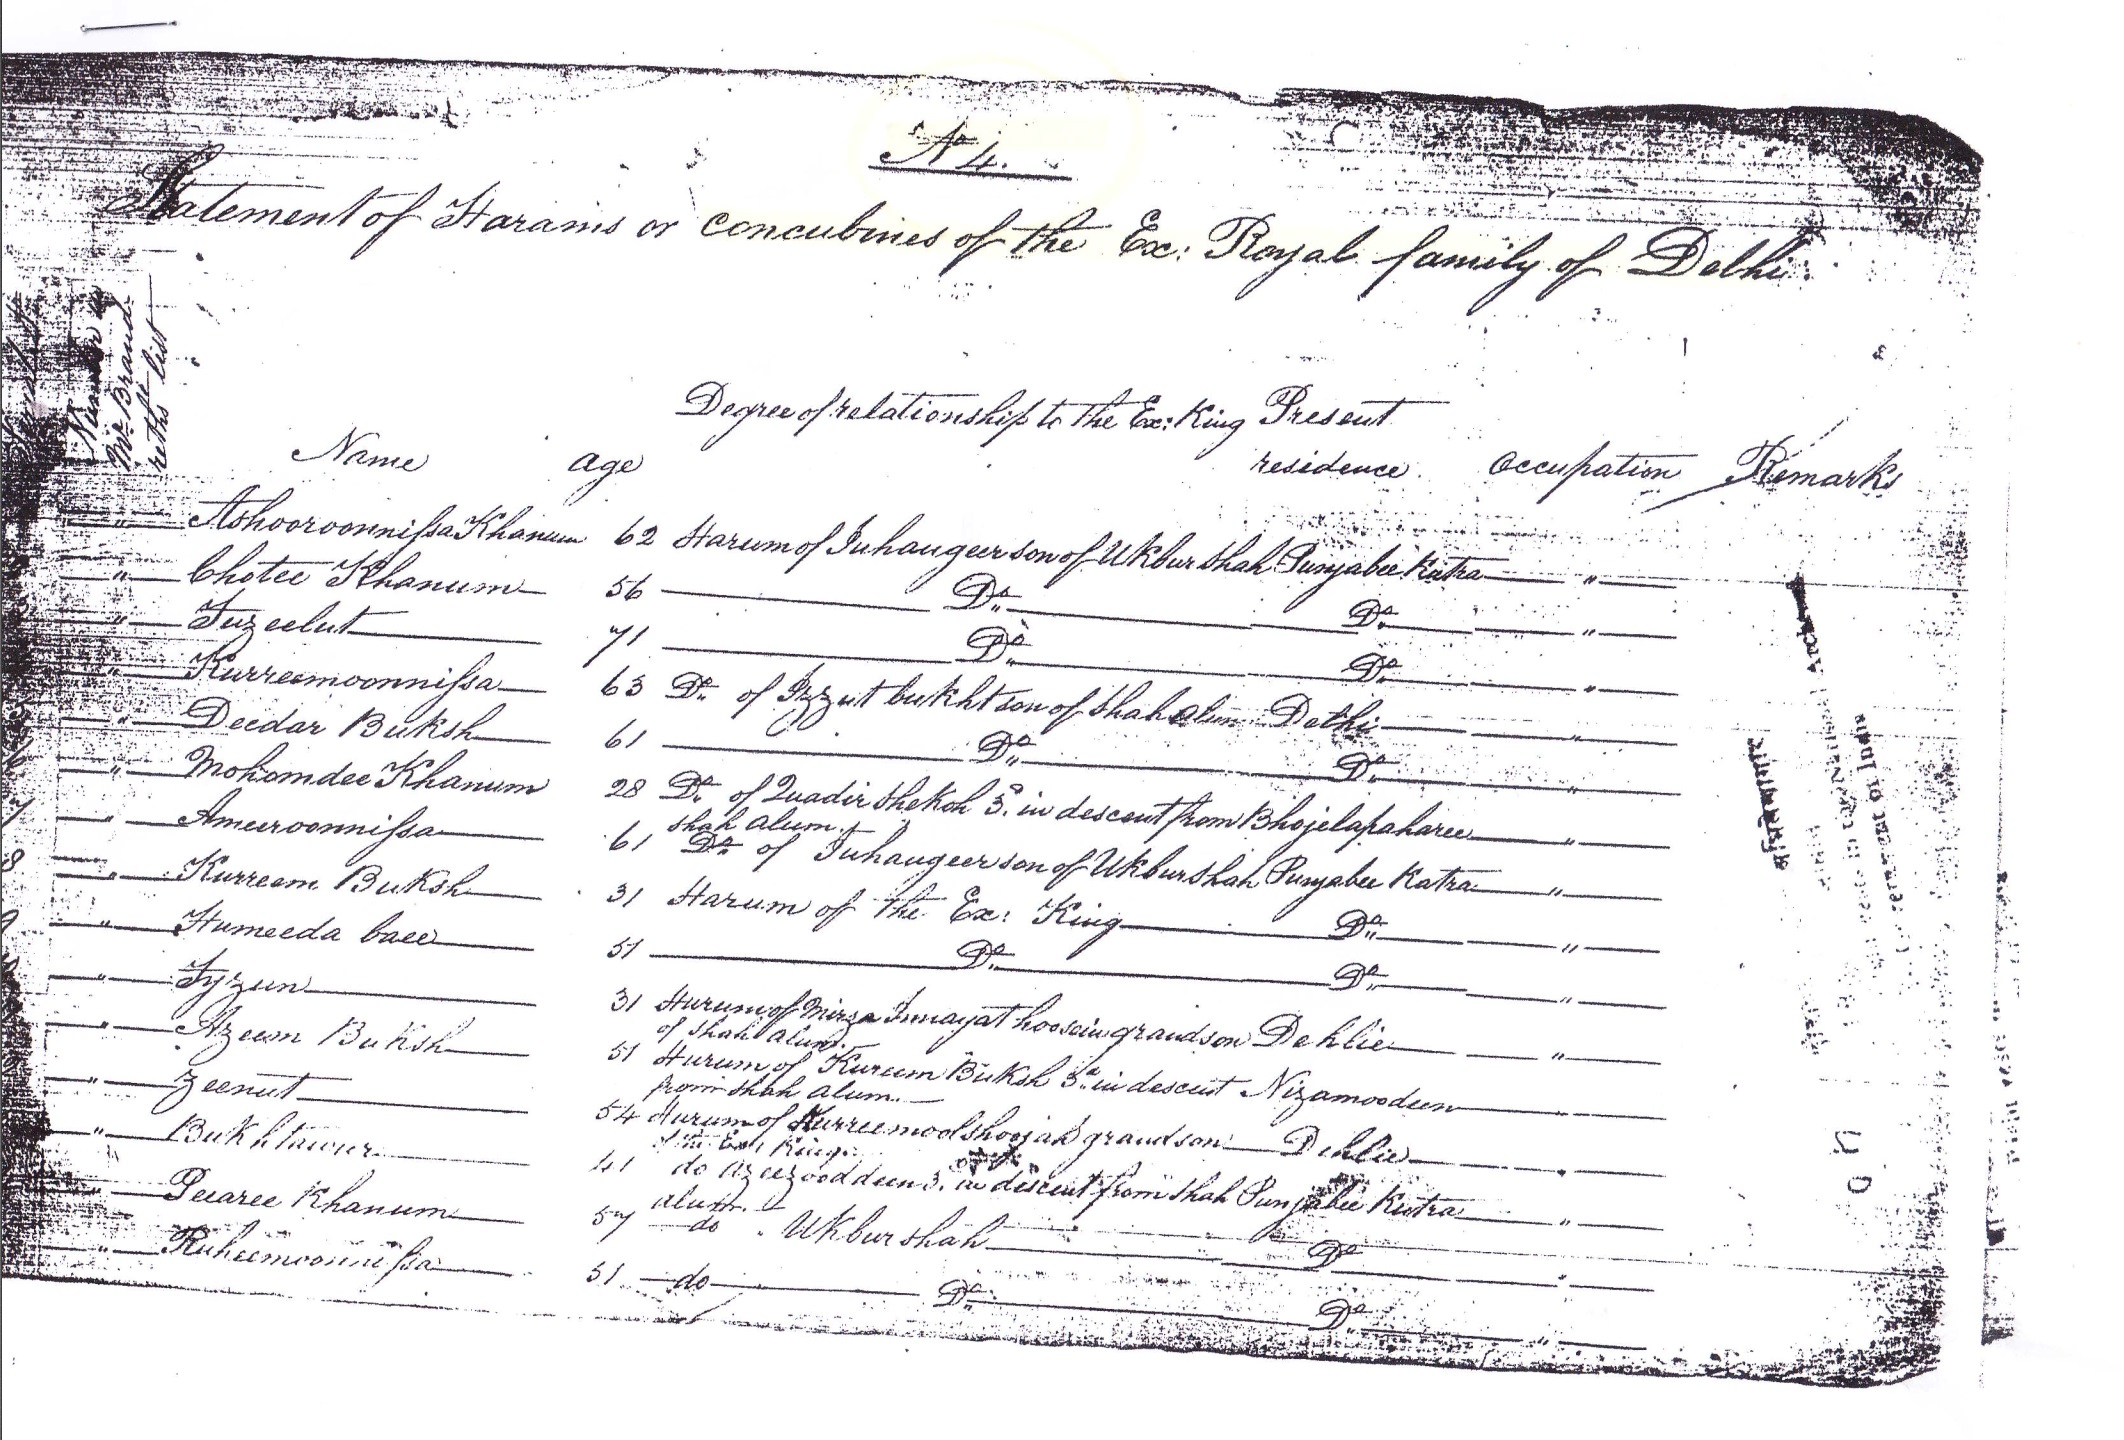 No 4.
Statement of Harams or concubines of the Ex: Royal family of Delhi.
Number in
Mr. Brand-
reths list
Name age Degree of relationship to the Ex: King Present residence Occupation Remarks
" Ashooroonnissa Khanum 62 Harum of Juhangeer son of Ukbur Shah Punjabee Katra "
" Chotee Khanum 56 Do. Do. "
" Fuzeelut 71 Do. Do. "
" Kurreemoonnissa 63 Do. of Izzut bukht son of Shah alum Delhi "
" Deedar Buksh 61 Do. Do. "
" Mohomdee Khanum 28 Do. of Quadir Shekoh 3d. in descent from Bhojelapaharee "
Shah alum.
" Ameeroonnissa 61 Do. of Juhangeer son of Ukbur Shah Punjabee Katra "
" Kurreem Buksh 31 Harum of the Ex: King Do. "
" Humeeda baee 51 Do. Do. "
" Fyzun 31 Hurum of Mirza Innayat hoosein grandson Dehlie "
of Shah alum.
" Azeem Buksh 51 Hurum of Kureem Buksh 3d. in descent Nizamoodeen "
from Shah alum.
" Zeenut 54 Hurum of Kurreemool Shoojah grandson Dehlie "
of the Ex: King.
" Bukhtawur 41 do Azeezooddeen 3. in descent from Shah Punjabee Kutra "
alum.
" Pearee Khanum 57 do Ukbur Shah Do "
" Ruheemoonnissa 51 do Do. Do "